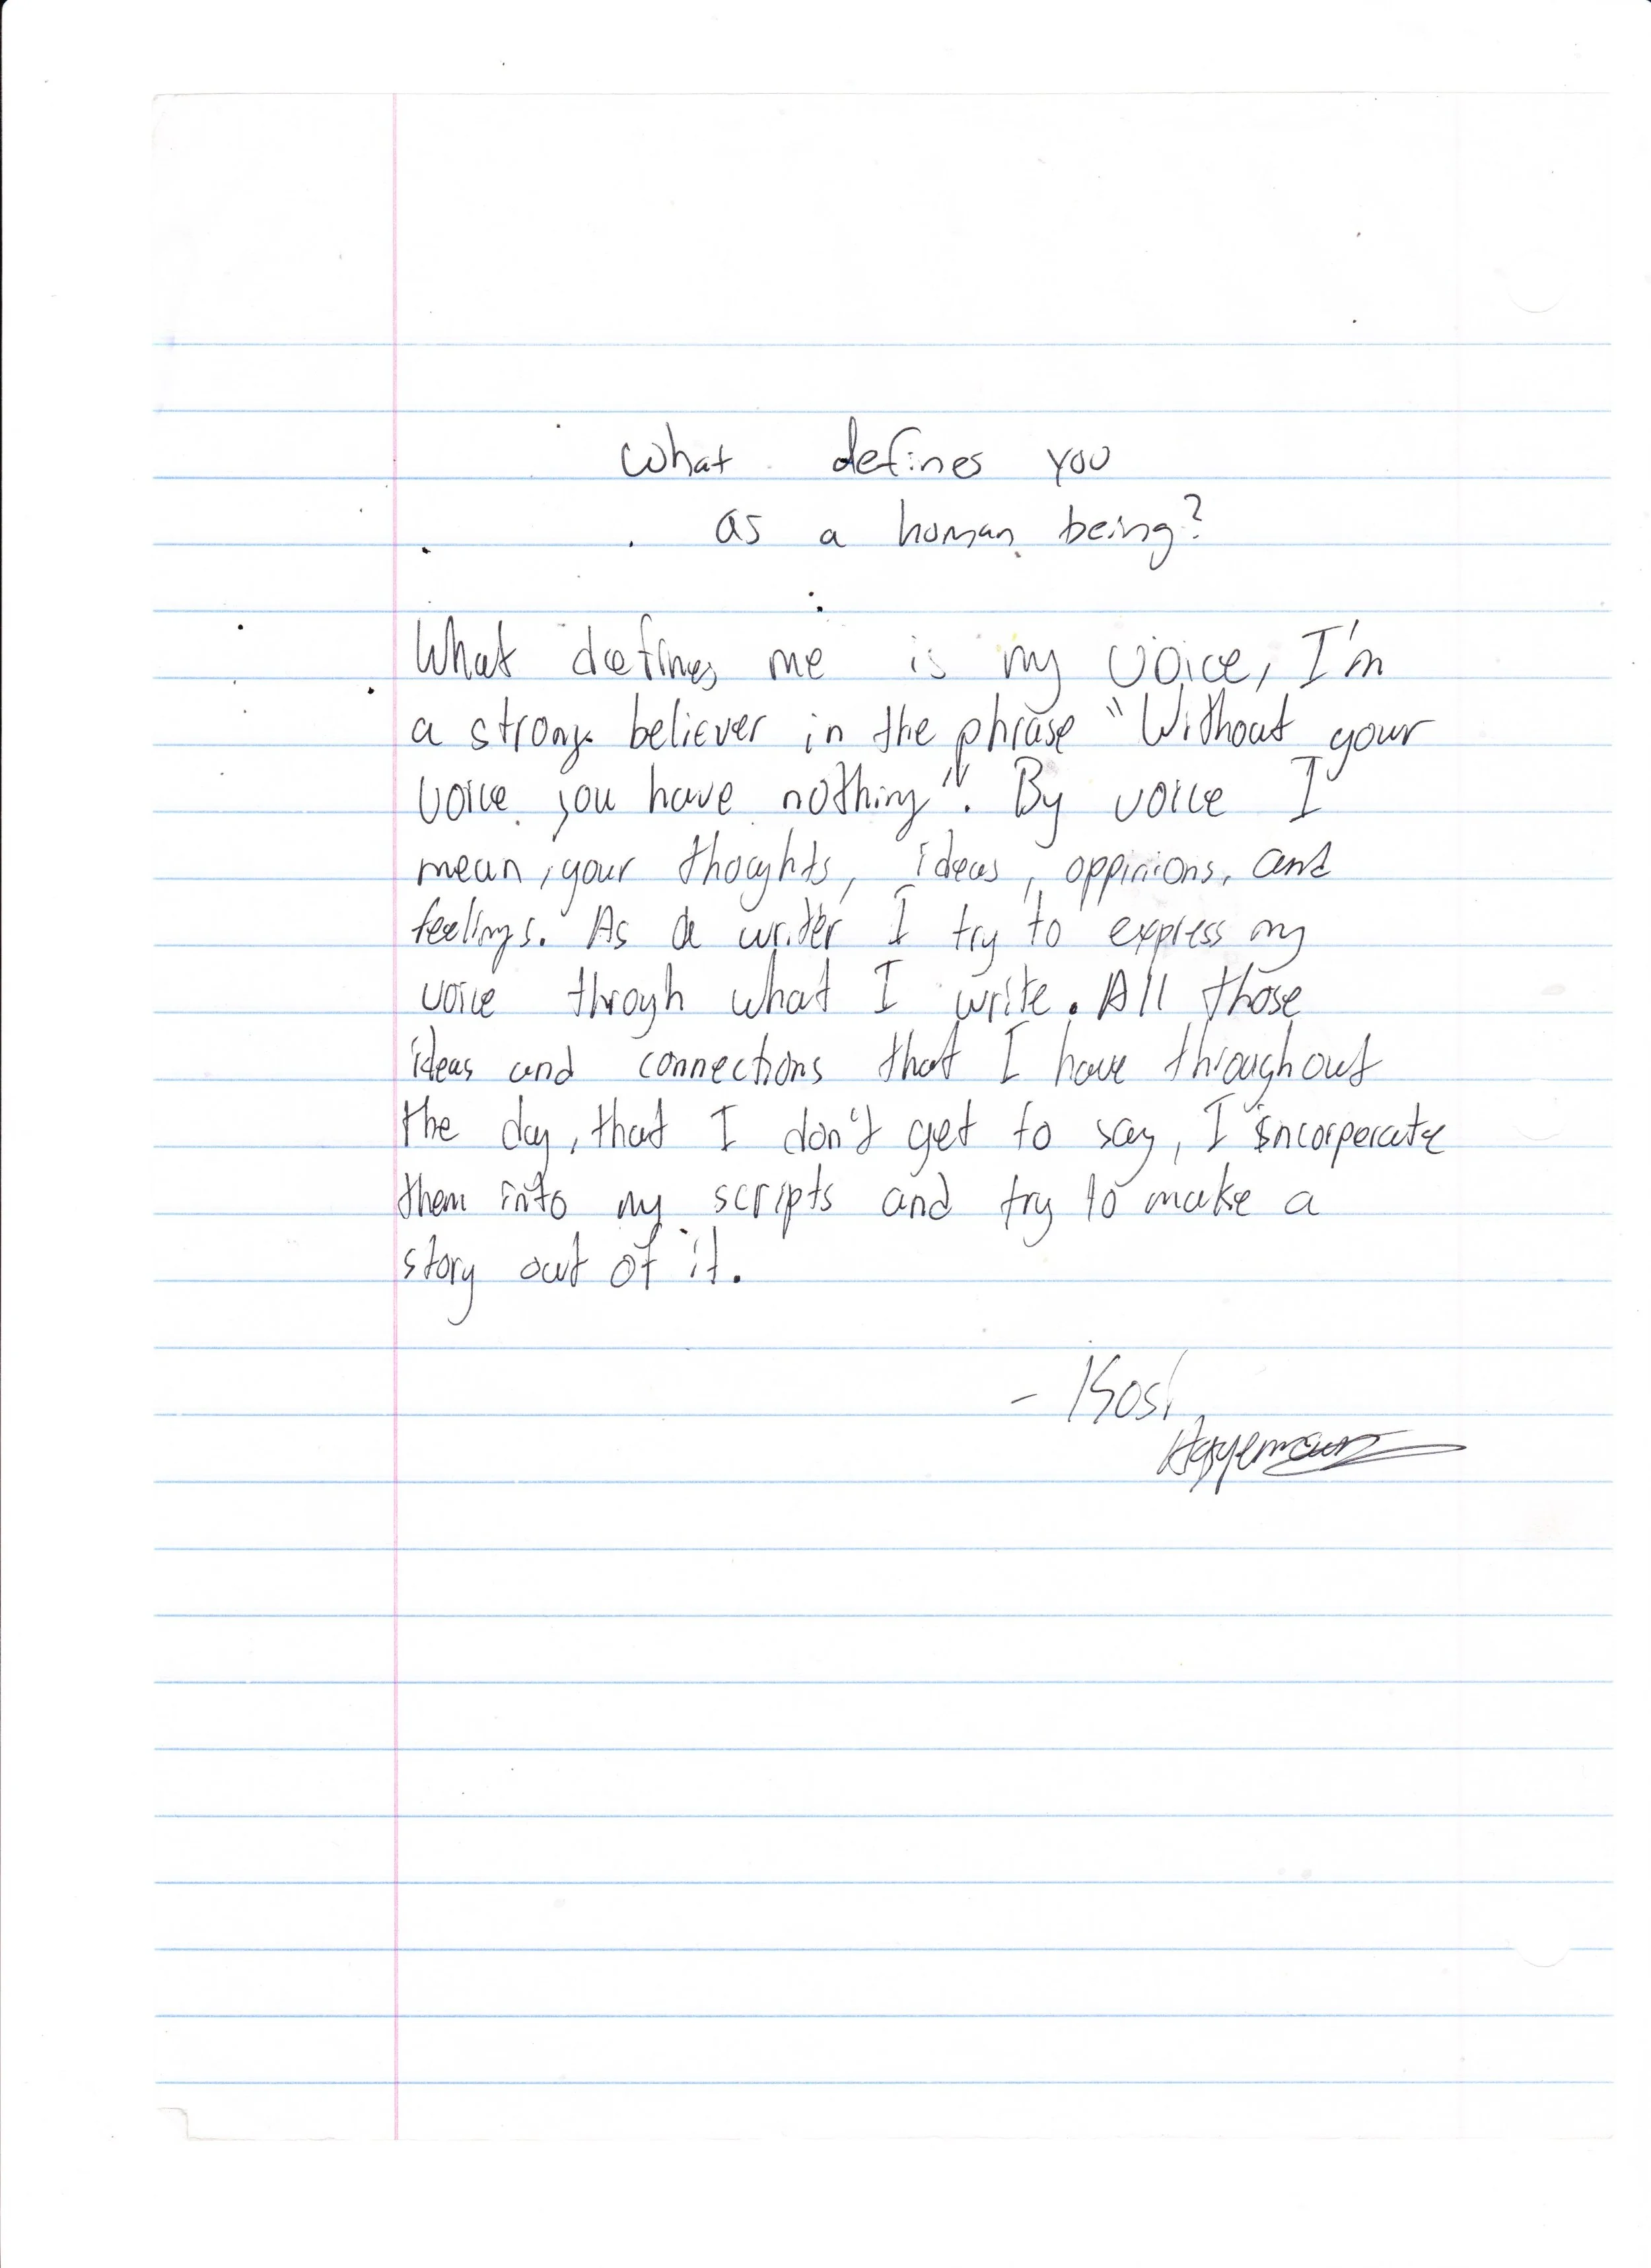 What defines you
as a human being?
What defines me is my voice, I'm
a strong believer in the phrase "Without your
voice you have nothing". By voice I
mean, your thoughts, ideas, oppinions, and
feelings. As a writer I try to express my
voice throgh what I write. All those
ideas and connections that I have throughout
the day, that I don't get to say, I incorperate
them into my scripts and try to make a
story out of it.
- Kosi
Agyemang